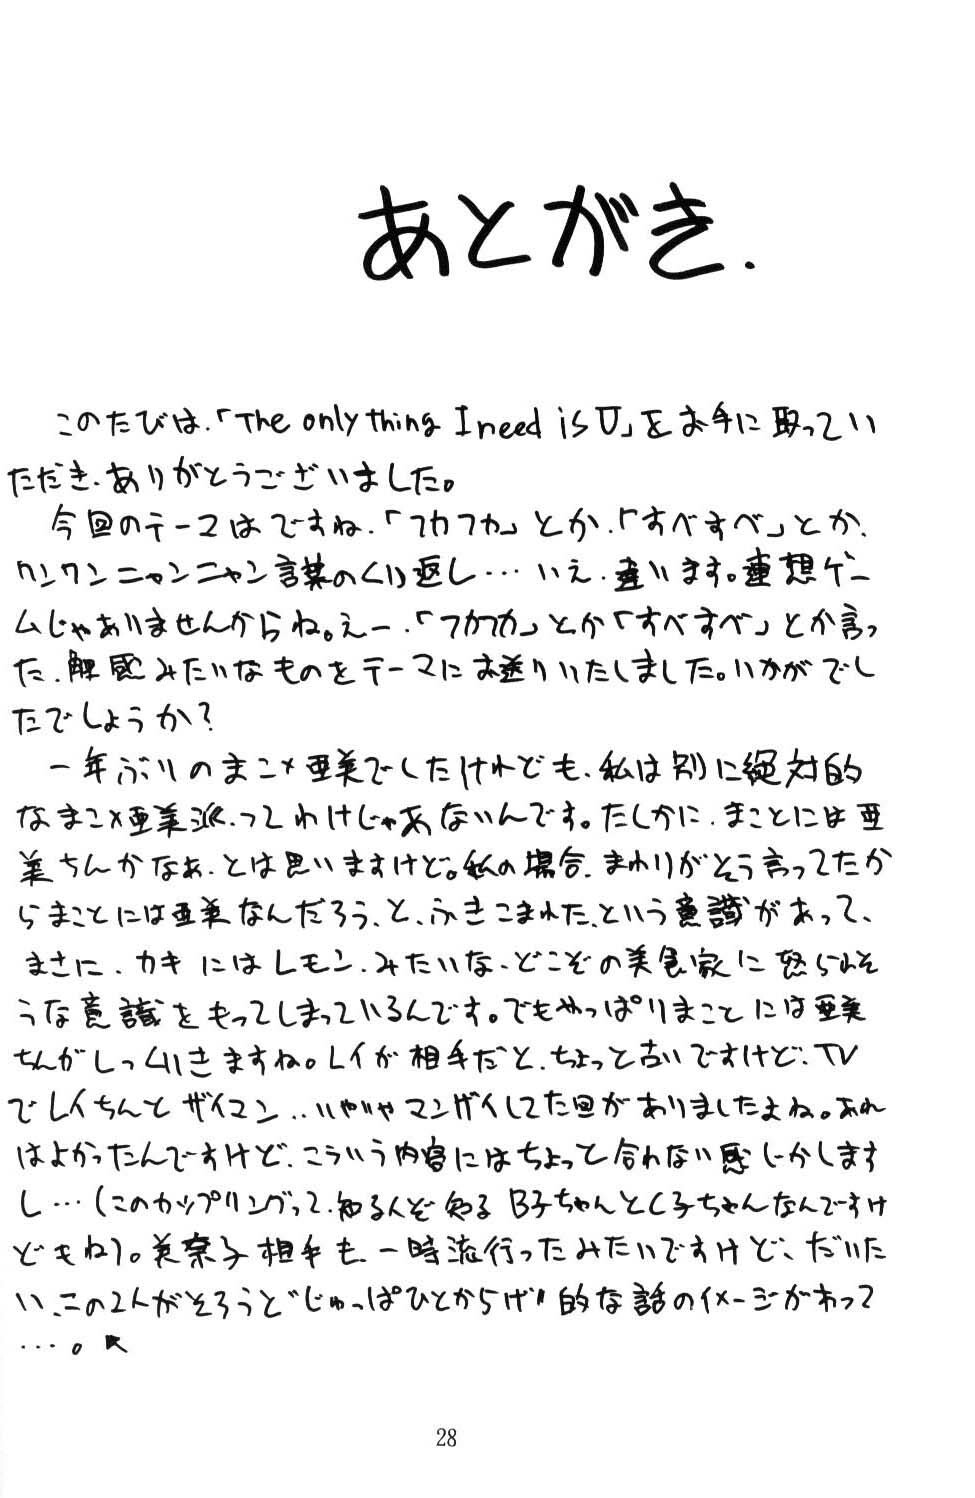 あとがき.
このたびは、「The only thing I need is U」をお手に取ってい
ただき、ありがとうございました。
今回のテーマはですね、「フカフカ」とか、「すべすべ」とか、
ワンワンニャンニャン言葉のくり返し…いえ、違います。連想ゲー
ムじゃありませんからね。えー、「フカフカ」とか「すべすべ」とか言っ
た、触感みたいなものをテーマにお送りいたしました。いかがでし
たでしょうか?
一年ぶりのまこ×亜美でしたけれども、私は別に絶対的
なまこ×亜美派、ってわけじゃあないんです。たしかに、まことには亜
美ちんかなぁ、とは思いますけど。私の場合、まわりがそう言ってたか
らまことには亜美なんだろう、と、ふきこまれた、という意識があって、
まさに、カキにはレモン、みたいな、どこぞの美食家に怒られそ
うな意識をもってしまっているんです。でもやっぱりまことには亜美
ちんがしっくりきますね。レイが相手だと、ちょっと古いですけど、TV
でレイちんとザイマン、、いやいやマンザイしてた回がありましたよね。あれ
はよかったんですけど、こういう内容にはちょっと合わない感じがします
し…(このカップリングって、知るんぞ知るB子ちゃんとC子ちゃんなんですけ
どもね)。美奈子相手も、一時流行ったみたいですけど、だいた
い、この2人がそろうと"じゅっぱひとからげ"的な話のイメージがあって
…。
28